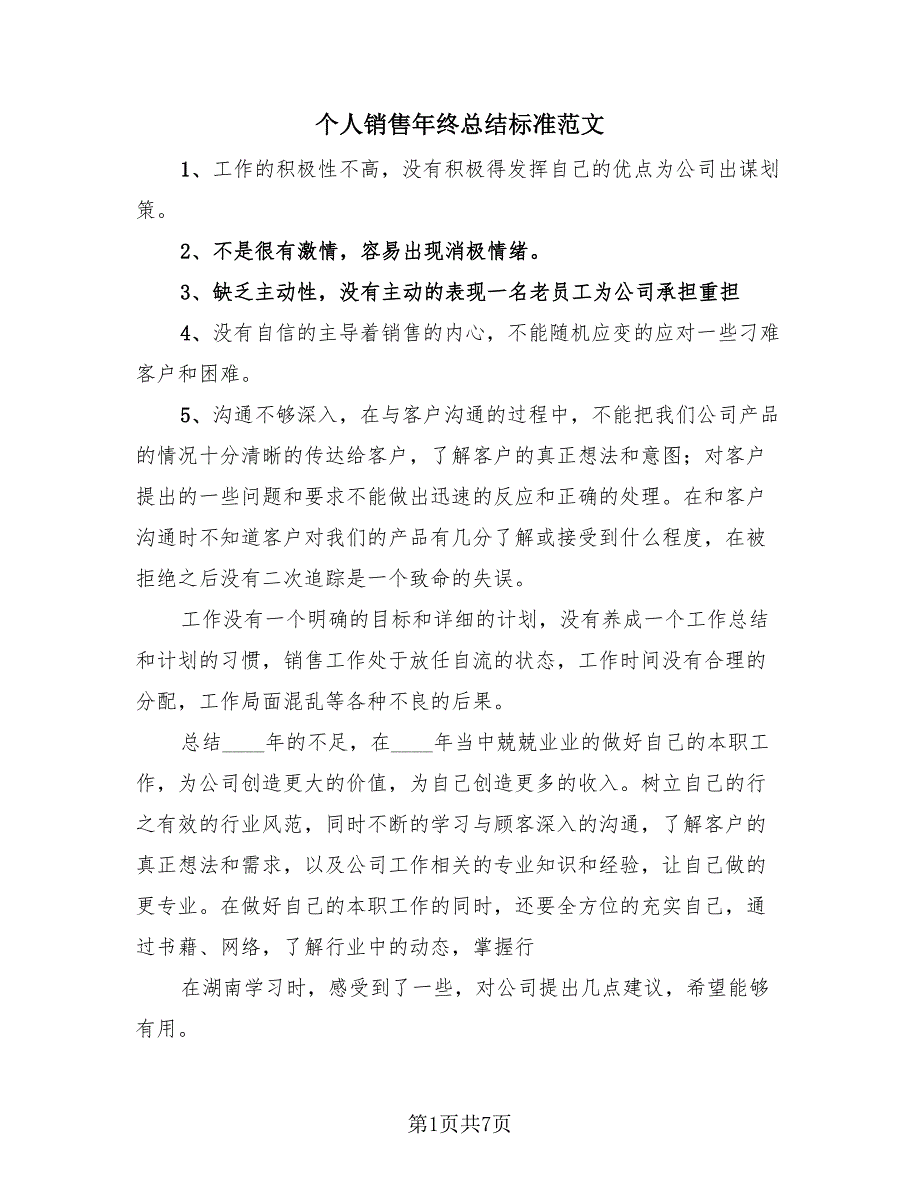 个人销售年终总结标准范文
1、工作的积极性不高，没有积极得发挥自己的优点为公司出谋划
策。
2、不是很有激情，容易出现消极情绪。
3、缺乏主动性，没有主动的表现一名老员工为公司承担重担
4、没有自信的主导着销售的内心，不能随机应变的应对一些刁难
客户和困难。
5、沟通不够深入，在与客户沟通的过程中，不能把我们公司产品
的情况十分清晰的传达给客户，了解客户的真正想法和意图；对客户
提出的一些问题和要求不能做出迅速的反应和正确的处理。在和客户
沟通时不知道客户对我们的产品有几分了解或接受到什么程度，在被
拒绝之后没有二次追踪是一个致命的失误。
工作没有一个明确的目标和详细的计划，没有养成一个工作总结
和计划的习惯，销售工作处于放任自流的状态，工作时间没有合理的
分配，工作局面混乱等各种不良的后果。
总结____年的不足，在____年当中兢兢业业的做好自己的本职工
作，为公司创造更大的价值，为自己创造更多的收入。树立自己的行
之有效的行业风范，同时不断的学习与顾客深入的沟通，了解客户的
真正想法和需求，以及公司工作相关的专业知识和经验，让自己做的
更专业。在做好自己的本职工作的同时，还要全方位的充实自己，通
过书籍、网络，了解行业中的动态，掌握行
在湖南学习时，感受到了一些，对公司提出几点建议，希望能够
有用。
第1页共7页